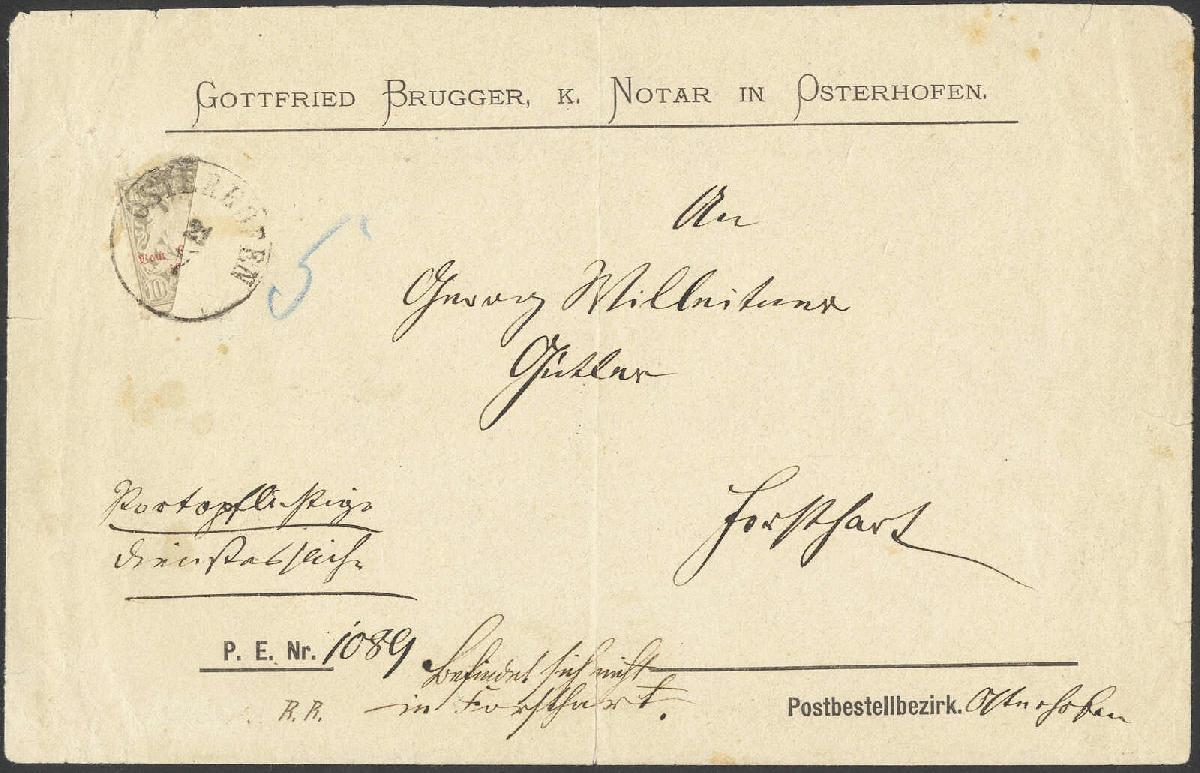 GOTTFRIED BRUGGER, K. NOTAR IN OSTERHOFEN.
OSTERHOFEN
10
5
An
Georg Willeitner
Gütler
Forsthart
Portopflichtige
Dienstessache
P. E. Nr. 1089
Befindet sich nicht
in Forsthart.
R. R.
Postbestellbezirk. Osterhofen